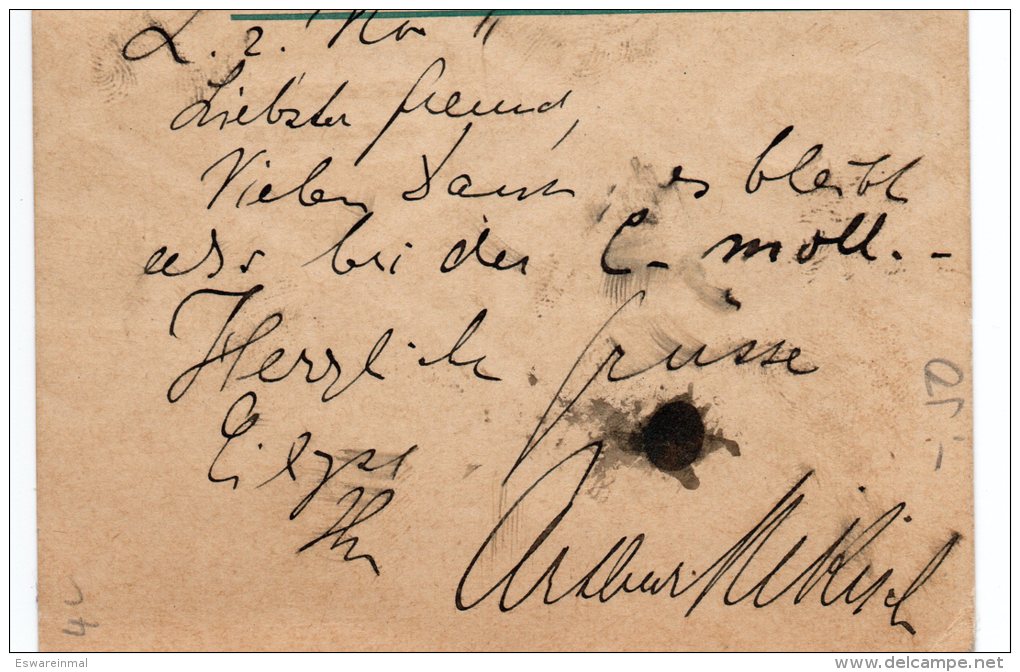 L. 2. Nov 11
Liebster Freund,
Vielen Dank, es bleibt
also bei der C-moll. -
Herzliche Grüsse
Eilgst
Ihr
Arthur Nikisch
50 -
Eswareinmal
www.delcampe.net